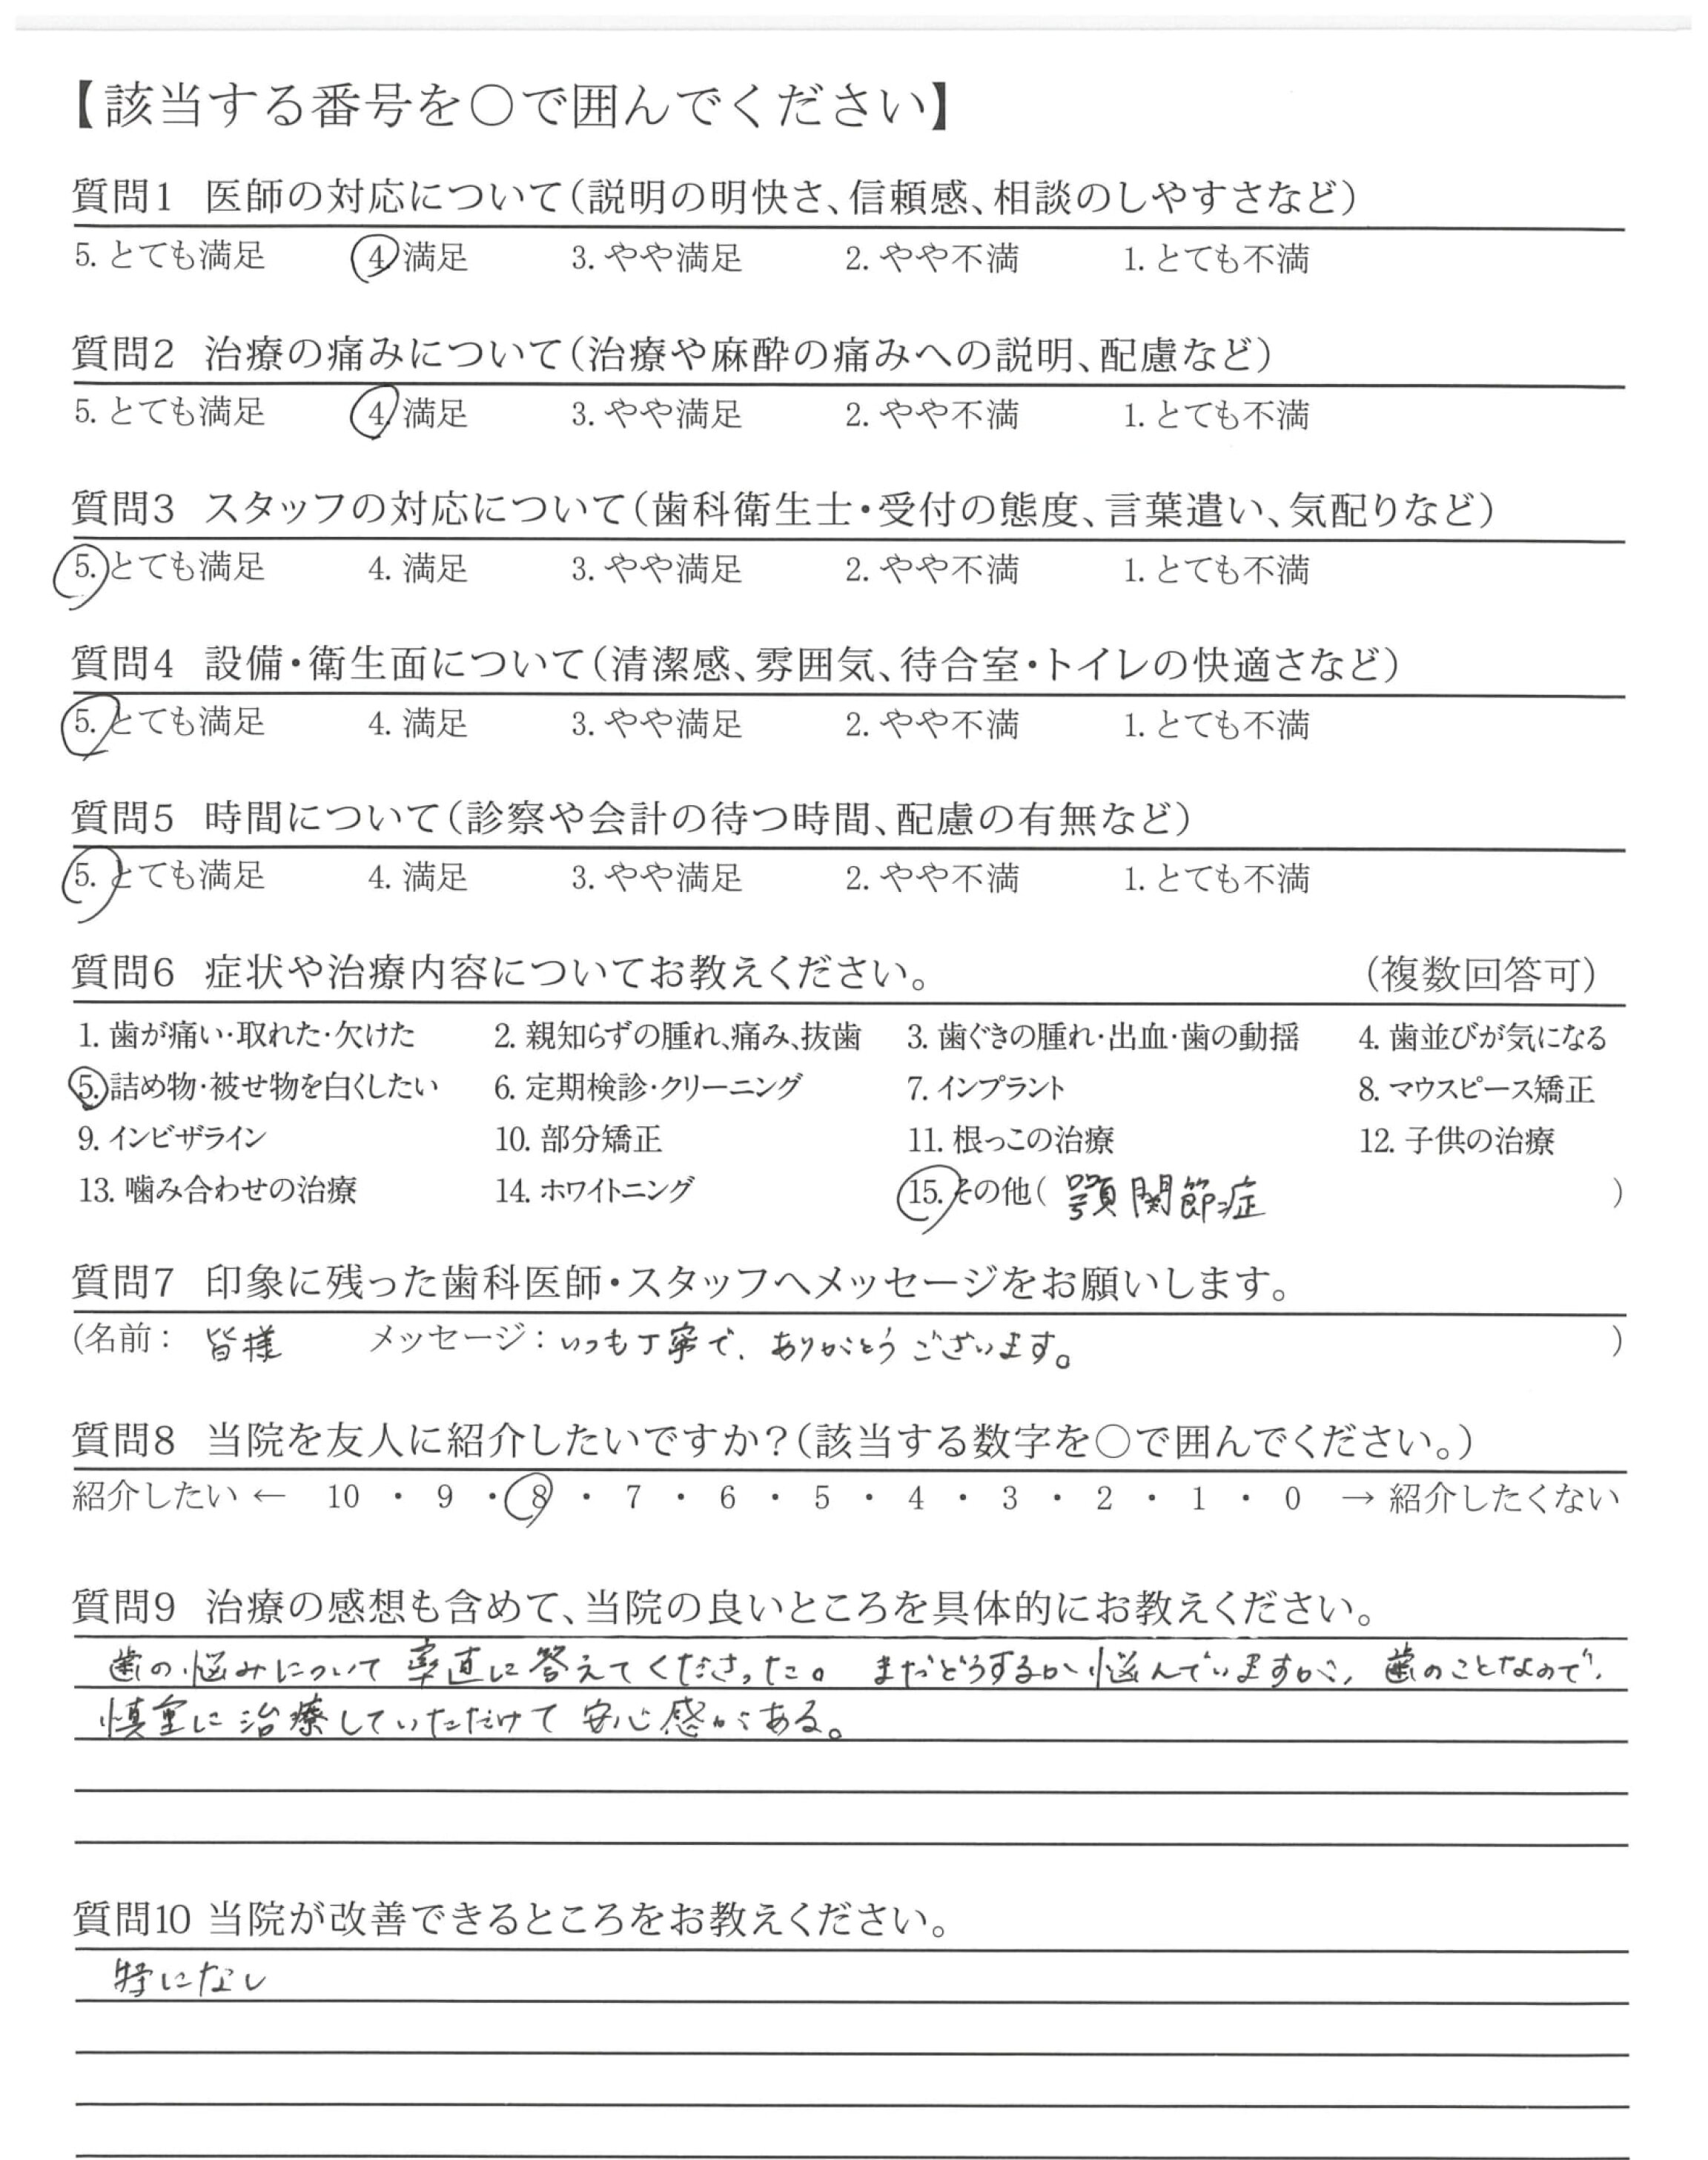 【該当する番号を○で囲んでください】
質問1 医師の対応について(説明の明快さ、信頼感、相談のしやすさなど)
5. とても満足 4. 満足 3. やや満足 2. やや不満 1. とても不満
質問2 治療の痛みについて(治療や麻酔の痛みへの説明、配慮など)
5. とても満足 4. 満足 3. やや満足 2. やや不満 1. とても不満
質問3 スタッフの対応について(歯科衛生士・受付の態度、言葉遣い、気配りなど)
5. とても満足 4. 満足 3. やや満足 2. やや不満 1. とても不満
質問4 設備・衛生面について(清潔感、雰囲気、待合室・トイレの快適さなど)
5. とても満足 4. 満足 3. やや満足 2. やや不満 1. とても不満
質問5 時間について(診察や会計の待つ時間、配慮の有無など)
5. とても満足 4. 満足 3. やや満足 2. やや不満 1. とても不満
質問6 症状や治療内容についてお教えください。 (複数回答可)
1. 歯が痛い・取れた・欠けた 2. 親知らずの腫れ、痛み、抜歯 3. 歯ぐきの腫れ・出血・歯の動揺 4. 歯並びが気になる
5. 詰め物・被せ物を白くしたい 6. 定期検診・クリーニング 7. インプラント 8. マウスピース矯正
9. インビザライン 10. 部分矯正 11. 根っこの治療 12. 子供の治療
13. 噛み合わせの治療 14. ホワイトニング 15. その他( 顎関節症 )
質問7 印象に残った歯科医師・スタッフへメッセージをお願いします。
(名前: 皆様 メッセージ: いつも丁寧で、ありがとうございます。 )
質問8 当院を友人に紹介したいですか?(該当する数字を○で囲んでください。)
紹介したい ← 10 ・ 9 ・ 8 ・ 7 ・ 6 ・ 5 ・ 4 ・ 3 ・ 2 ・ 1 ・ 0 → 紹介したくない
質問9 治療の感想も含めて、当院の良いところを具体的にお教えください。
歯の悩みについて率直に答えてくださった。まだどうするか悩んでいますが、歯のことなので、
慎重に治療していただけて安心感がある。
質問10 当院が改善できるところをお教えください。
特になし